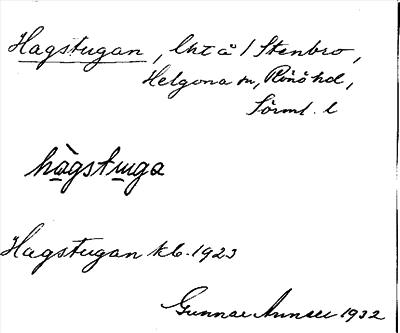 Hagstugan, lht å / Stenbro,
Helgona sn, Rönö hd,
Sörml. l
hàgstuga
Hagstugan kb. 1923
Gunnar 1932